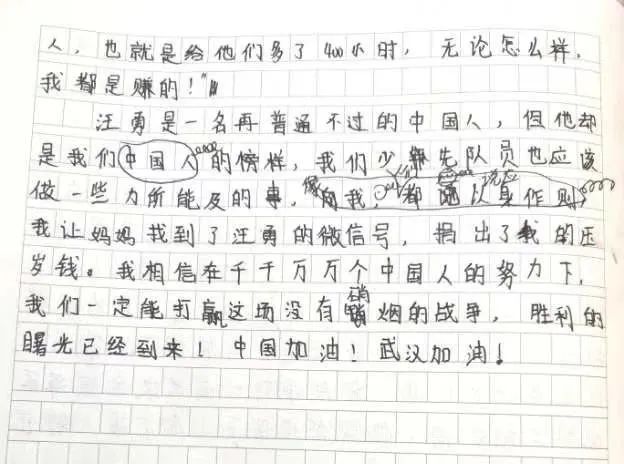 人，也就是给他们多了400小时，无论怎么样，
我都是赚的！”
汪勇是一名再普通不过的中国人，但他却
是我们中国人的榜样，我们少先队员也应该
做一些力所能及的事，像我，都以身作则
我让妈妈找到了汪勇的微信号，捐出了我的压
岁钱。我相信在千千万万个中国人的努力下，
我们一定能打赢这场没有硝烟的战争，胜利的
曙光已经到来！中国加油！武汉加油！